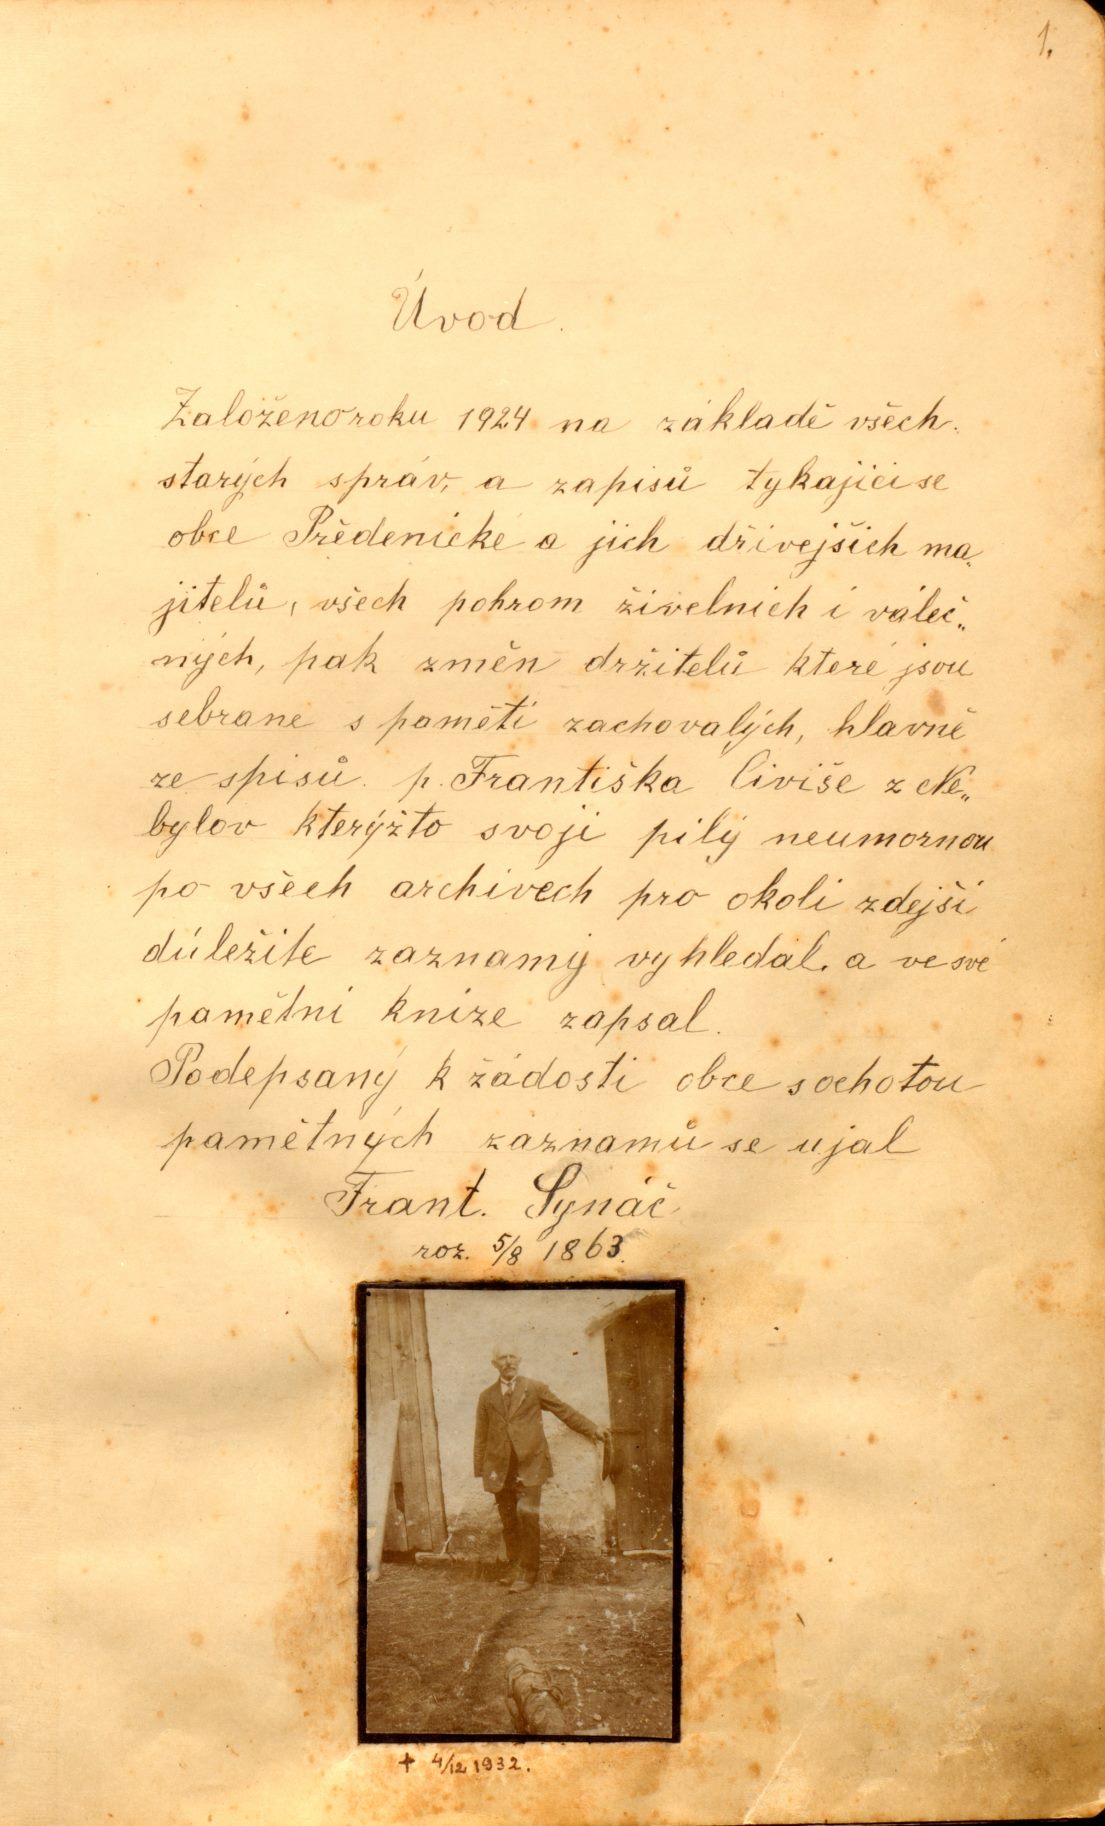 1.
Úvod.
Založeno roku 1924 na základě všech
starých správ, a zapisů tykajici se
obce Předenické a jich dřivejšich ma„
jitelů, všech pohrom živelnich i váleč„
ných, pak změn držitelů které jsou
sebrane s paměti zachovalých, hlavně
ze spisů p. Františka Civiše z Ne„
bylov kterýžto svoji pilý neumornou
po všech archivech pro okoli zdejši
důležite zaznamy vyhledal. a ve své
pamětni knize zapsal.
Podepsaný k žádosti obce s ochotou
pamětných záznamů se ujal
Frant. Synáč
roz. 5/8 1863.
✝ 4/12 1932.